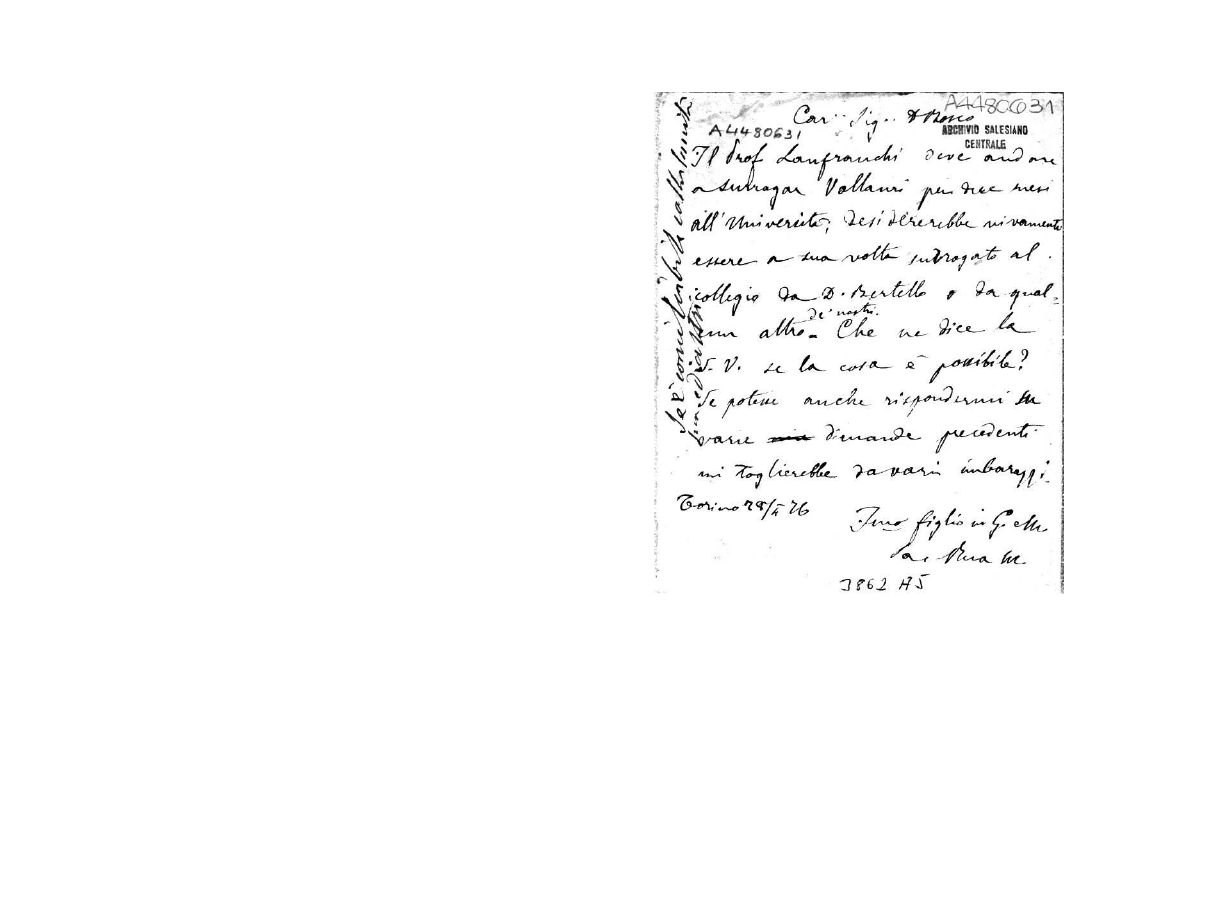 A4480631
Car.mo Sig. D Bosco
A4480631
ARCHIVIO SALESIANO
CENTRALE
Il Prof Lanfranchi deve andare
a surrogar Vallauri per due mesi
all'Università; desidererebbe vivamente
essere a sua volta surrogato al
collegio da D. Bertello o da qual-
cun altro de' nostri. Che ne dice la
S. V. se la cosa è possibile?
Se potesse anche rispondermi su
varie dimande precedenti
mi toglierebbe da varii imbarazzi.
Torino 76
figlio in G. e M.
Sac. Rua M.
3862 A5
Se è